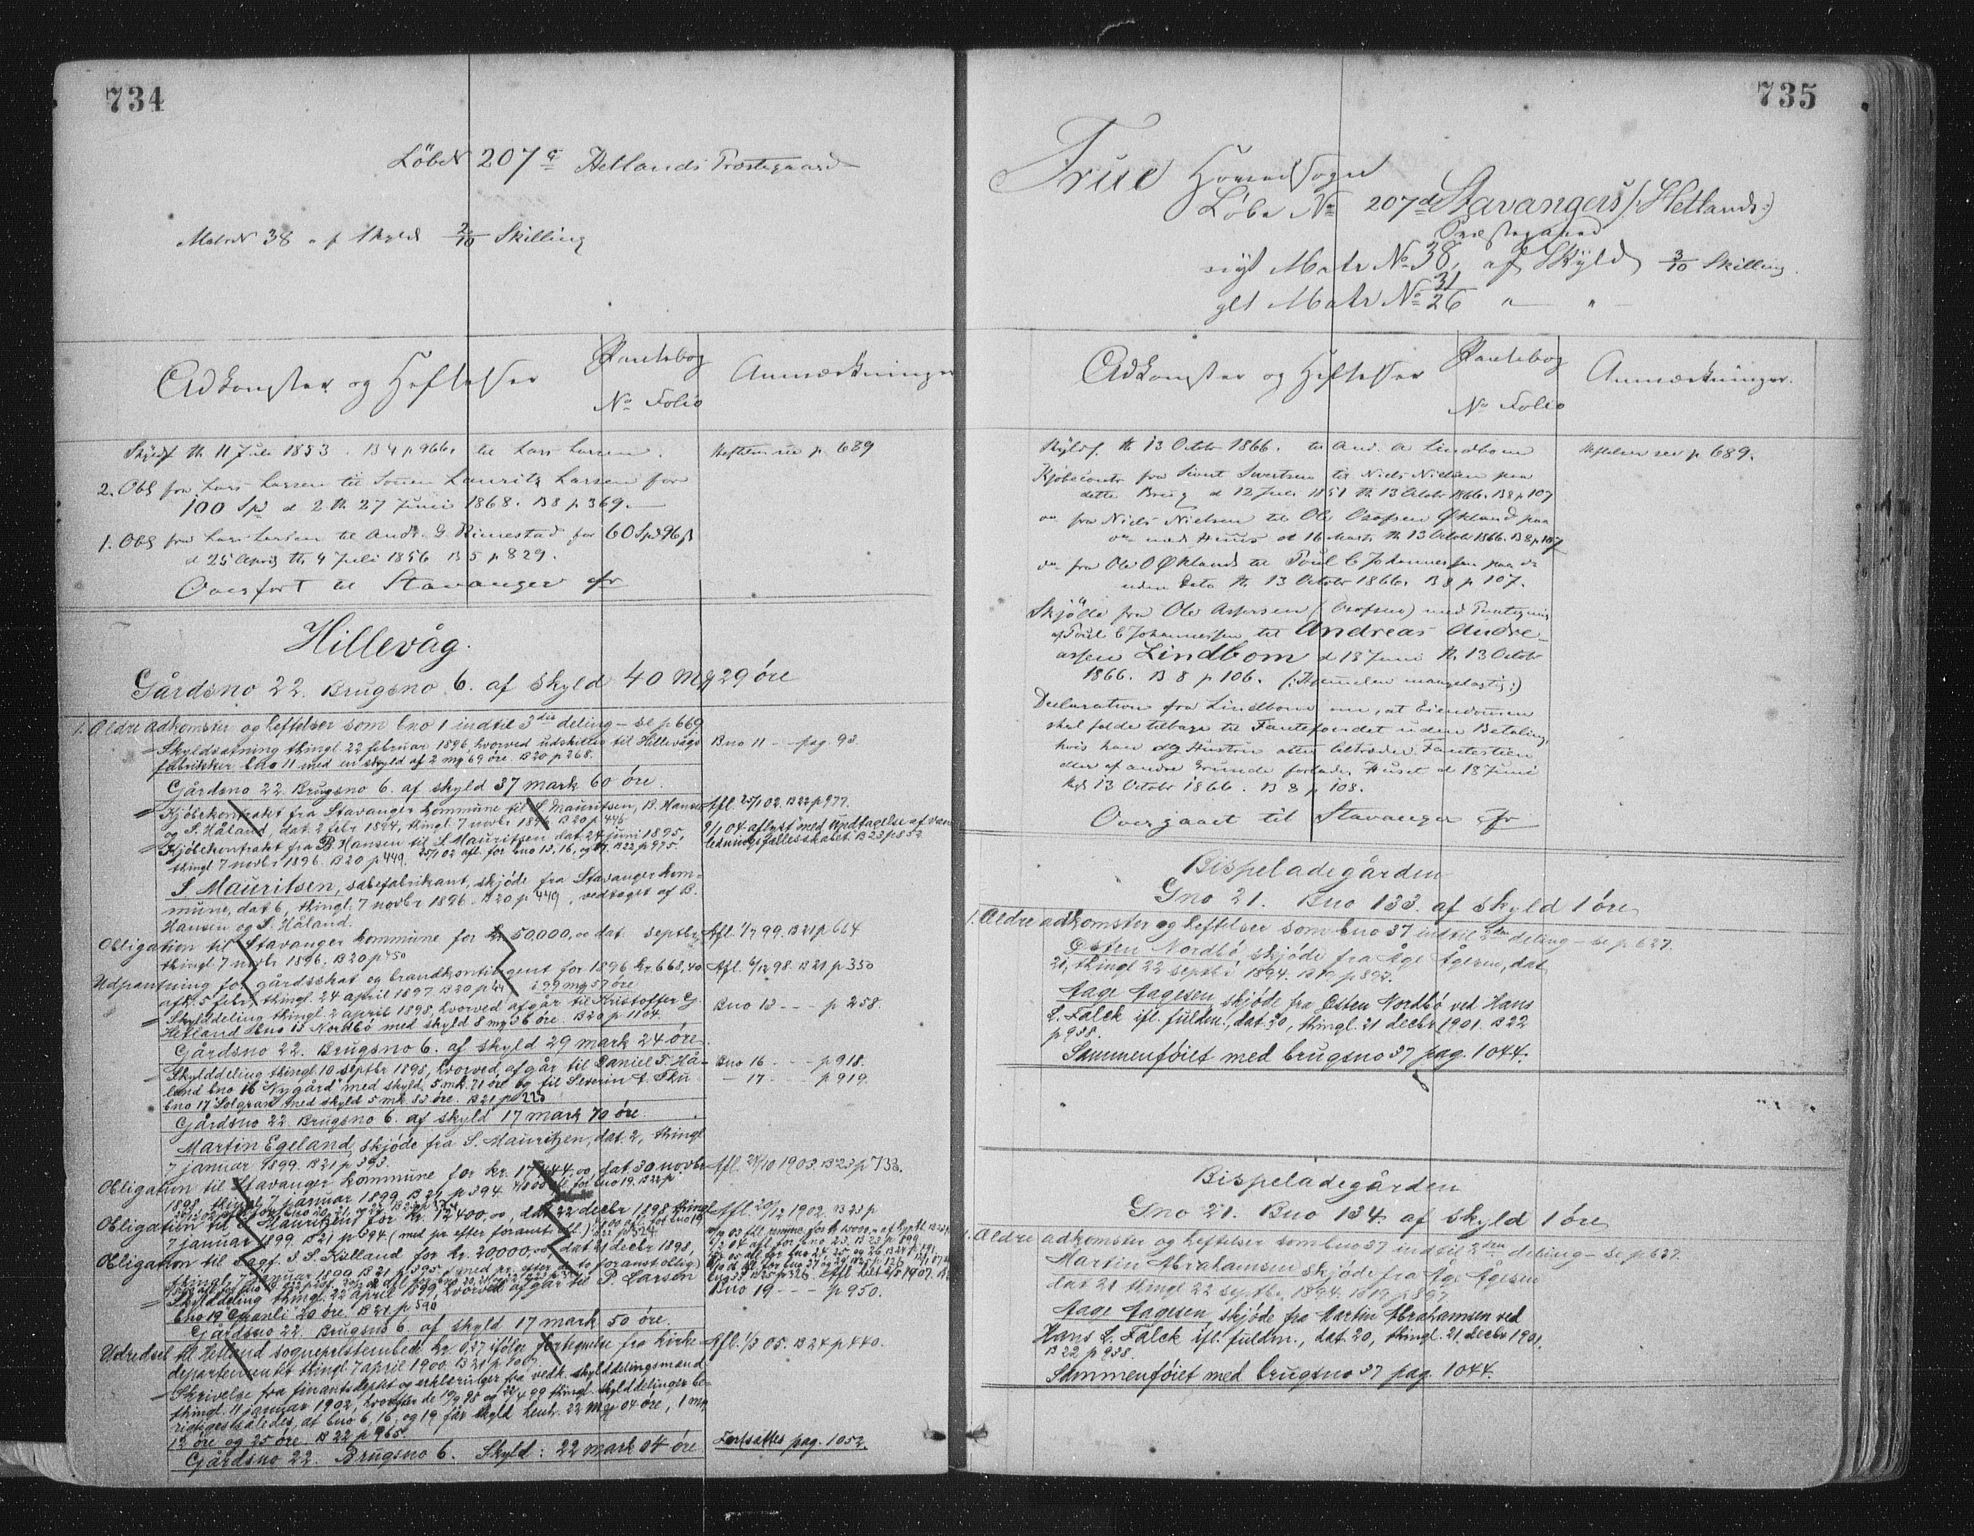 734
Løbe № 207 c Hetlands Præstegaard
Matr № 38 af Skyld 2/10 Skilling
Adkomster og Heftelser
Pantebog
№ Folio
Anmærkninger
th 11 Juli 1853. B 4 p 966. til Lars Larsen.
Heftelser see p. 689
2. Obl fra Lars Larsen til Sønen Lauritz Larsen for
100 Spd d 2 th 27 Juni 1868. B 8 p 369.
1. Obl fra Lars Larsen til Andr. G. Rimestad for 60 Spd 96 β
d 25 April th 4 Juli 1856 B 5 p 829.
Overført til Stavanger
Hillevåg.
Gårdsno 22. Brugsno 6. af skyld 40 Mg 29 øre
1. Ældre adkomster og heftelser som bno 1 indtil 3die deling – se p 669
Skyldsætning thingl. 22 februar 1896, hvorved udskiltes til Hillevågs
Bno 11 – pag. 93
fabrikker bno 11 med en skyld af 2 mg 69 øre. B 20 p 268.
Gårdsno 22. Brugsno 6. af skyld 37 mark 60 øre.
Kjøbekontrakt fra Stavanger kommune til S. Mauritsen, B. Hansen
Afl. 25/1 02. B 22 p 977.
og S. Håland, dat. 2 febr 1894, thingl. 7 novbr 1896 B 20 p 446
Kjøbekontrakt fra B. Hansen til S. Mauritsen dat. 24 juni 1895,
9/1 04 aflyst med undtagelse af van
ledningsfællesskabet. B 23 p 852
thingl. 7 novbr 1896. B 20 p 449. 25/1 02 afl. for bno 13, 16, og 17. B 22 p 975.
S. Mauritsen, sæbefabrikant, skjøde fra Stavanger kom-
mune, dat 6, thingl. 7 novbr 1896. B 20 p 449, vedtaget af B.
Hansen og S. Håland.
Obligation til Stavanger kommune for kr 50,000,00 dat septbr,
Afl. 1/7 99. B 21 p 664
thingl. 7 novbr 1896. B 20 p 450
Udpantning for gårdsskat og brandkontingent for 1896 kr 668,40
Afl. 6/12 98. B 21 p 350
afh. 5 febr, thingl. 24 april 1897 B 20 p i 99 mg 57 øre
Skylddeling thingl. 2 april 1898, hvorved afgår til Kristoffer G.
Bno 13 – – – p 258.
Hetland bno 13 Nordbø med skyld 8 mg 36 øre. B 20 p 1104.
Gårdsno 22. Brugsno 6. af skyld 29 mark 24 øre.
Skylddeling thingl. 10 septbr 1898, hvorved afgår til Daniel T. Hå-
Bno 16 – – – p 918.
land bno 16 "Nygård" med skyld 5 mk. 71 øre og til Severin T.
– 17 – – – p 919.
bno 17 Solgran med skyld 5 mk 83 øre. B 21 p 223
Gårdsno 22. Brugsno 6. af skyld 17 mark 70 øre.
Martin Egeland, skjøde fra S. Mauritzen, dat. 2, thingl
7 januar 1899. B 21 p 393.
Obligation til Stavanger kommune for kr. 17,444,00, dat. 30 novbr
Afl. 24/10 1903. B 23 p 738.
1898, thingl. 7 januar 1899 B 21 p 394.
Obligation til S. Mauritzen for kr. 12400,00, dat 22 decbr 1898 thingl
Afl. 20/12 1902. B 23 p
7 januar 1899 B 21 p 394 (med pr. efter foranst. obl.)
Obligation til Sagf. S. S. Kulland for kr. 20000,00, dat 21 decbr 1898,
thingl. 7 januar 1899 B 21 p 395 (med pr. efter de to foranst. oblig)
Skylddeling thingl. 22 april 1899, hvorved afgår til P. Larsen
Bno 19 – – – p 950.
bno 19 Granli 20 øre. B 21 p 590
Gårdsno 22. Brugsno 6. af skyld 17 mark 50 øre.
Udredsel til Hetland sogneprestembede kr. 0,37 ifølge fortegnelse fra kirke-
Afl. 1/3 05. B 24 p 440.
departementet thingl. 7 april 1900. B 21 p 1007.
Skrivelse fra finantsdeptet og erklæringer fra vedk. skylddelingsmænd
thingl. 11 januar 1902, hvorefter de 10/9 98 og 22/4 99 thingl. skylddelinger be-
rigtiges således, at bno 6, 16, og 19 får skyld henh. 22 mg 04 øre, 1 mg
12 øre og 25 øre. B 22 p 965
Gårdsno 22. Brugsno 6. Skyld: 22 mark 04 øre.
Fortsættes pag. 1052.
735
Frue Hovedsogn
Løbe № 207 d Stavangers (: Hetlands :)
Præstegaard
nyt Matr № 38, af Skyld 3/10 Skilling.
glt Matr № 31/26 „ – „ –
Adkomster og Heftelser
Pantebog
№ Folio
Anmærkninger.
th 13 Octbr 1866. til And. A Lindbom
Heftelser see p 689.
Kjøbecontr fra Sivert Sivertsen til Niels Nielsen paa
dette Brug d 12 Juli 1851 th 13 Octbr 1866. B 8 p 107
do fra Niels Nielsen til Ole Økland paa
do med Huus d 16 Marts th 13 Octbr 1866. B 8 p 107
do fra Ole O Økland til Poul C Johannessen paa do
uden Dato th 13 Octobr 1866. B 8 p 107.
Skjøde fra Ole Aspersen med Paategning
af Poul C Johannessen til Andreas Andre-
assen Lindbom d 18 Juni th 13 Octobr
1866. B 8 p 106. (: Hjemmelen mangelagtig :)
Declaration fra Lindbom om, at Eiendommen
skal falde tilbage til Fantefondet uden Betaling,
hvis han og Hustru atter tiltræder Fantestien
eller af andre Grunde forlader Huset d 18 Juni
13 Octobr 1866. B 8 p 108.
Overgaaet til Stavanger
Bispeladegården
Gno 21. Bno 133. af skyld 1 øre
1. Ældre adkomster og heftelser som bno 37 indtil 2den deling – se p 627.
Østen Nordbø, skjøde fra Åge Ågesen, dat
21, thingl 22 septbr 1894. B 19 p 897.
Aage Aagesen, skjøde fra Østen Nordbø ved Hans
L. Falck ifl. fuldm., dat. 20, thingl. 21 decbr 1901. B 22
p 938.
Sammenføiet med brugsno 37 pag. 1044.
Bispeladegården
Gno 21. Bno 134. af skyld 1 øre
1. Ældre adkomster og heftelser som bno 37 indtil 2den deling – se p 627.
Martin Abrahamsen skjøde fra Åge Ågesen
dat 21 thingl 22 septbr. 1894. B 19 p 897
Aage Aagesen, skjøde fra Martin Abrahamsen ved
Hans L. Falck ifl. fuldm., dat. 20, thingl. 21 decbr 1901.
B 22 p 938.
Sammenføiet med brugsno 37 pag. 1044.